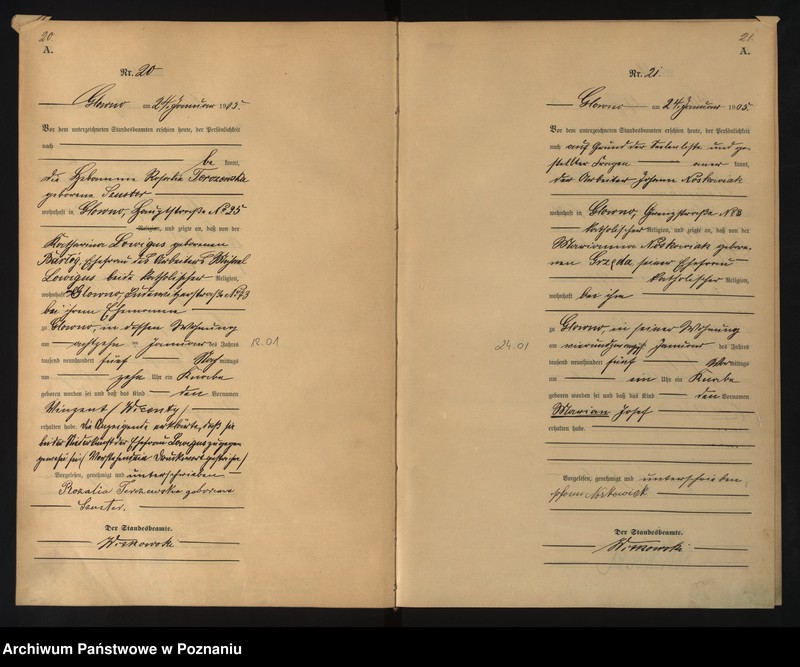 20.
A.
Nr. 20
Glowno am 24. Januar 1905.
Vor dem unterzeichneten Standesbeamten erschien heute, der Persönlichkeit
nach
be kannt,
die Hebamme Rosalia
geborene
wohnhaft in Glowno, Hauptstraße № 25
Religion, und zeigte an, daß von der
Katharina geborenen
Ehefrau des Arbeiters
beide katholischer Religion,
wohnhaft Glowno,
bei ihrem Ehemanne
zu Glowno, in dessen Wohnung
am achtzehn ten Januar des Jahres
tausend neunhundert fünf Nachmittags
um zehn Uhr ein Knabe
geboren worden sei und daß das Kind den Vornamen
Vinzent /Wicenty/
erhalten habe. Die Anzeigende erklärte, daß sie
bei der Niederkunft der Ehefrau zugegen
gewesen sei. / Vorstehend ein Druckwort gestrichen /
Vorgelesen, genehmigt und unterschrieben
Rozalia geborene
Der Standesbeamte.
18.01
21.
A.
Nr. 21.
Glowno am 24. Januar 1905.
Vor dem unterzeichneten Standesbeamten erschien heute, der Persönlichkeit
nach auf Grund der und ge-
stellter Fragen aner kannt,
der Arbeiter Johann Noskowiak
wohnhaft in Glowno, № 8
katholischer Religion, und zeigte an, daß von der
Marianna Noskowiak gebore-
nen Grzęda, seiner Ehefrau
katholischer Religion,
wohnhaft bei ihm
zu Glowno, in seiner Wohnung
am vierundzwanzigsten Januar des Jahres
tausend neunhundert fünf Vormittags
um ein Uhr ein Knabe
geboren worden sei und daß das Kind den Vornamen
Marian Josef
erhalten habe.
Vorgelesen, genehmigt und unterschrieben.
Johann Noskowiak
Der Standesbeamte.
24.01
Archiwum Państwowe w Poznaniu